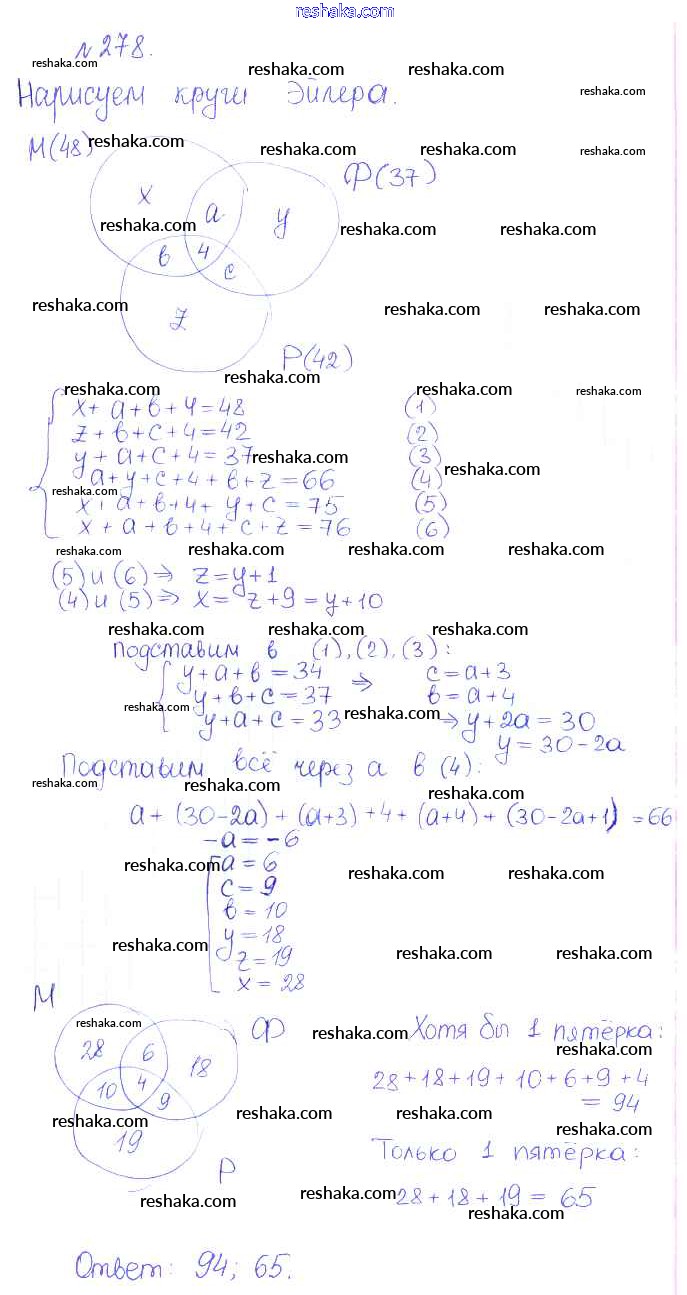 reshaka.com
№278.
Нарисуем круги Эйлера.
М(48)
Ф(37)
x
a
y
в
4
c
z
Р(42)
x + a + в + 4 = 48 (1)
z + в + c + 4 = 42 (2)
y + a + c + 4 = 37 (3)
a + y + c + 4 + в + z = 66 (4)
x + a + в + 4 + y + c = 75 (5)
x + a + в + 4 + c + z = 76 (6)
(5) и (6) ⇒ z = y + 1
(4) и (5) ⇒ x = z + 9 = y + 10
подставим в (1), (2), (3):
y + a + в = 34 ⇒ c = a + 3
y + в + c = 37 в = a + 4
y + a + c = 33 ⇒ y + 2a = 30
y = 30 - 2a
Подставим всё через a в (4):
a + (30 - 2a) + (a + 3) + 4 + (a + 4) + (30 - 2a + 1) = 66
-a = -6
a = 6
c = 9
в = 10
y = 18
z = 19
x = 28
М
Ф
28
6
18
10
4
9
19
Р
Хотя бы 1 пятёрка:
28 + 18 + 19 + 10 + 6 + 9 + 4
= 94
Только 1 пятёрка:
28 + 18 + 19 = 65
Ответ: 94; 65.